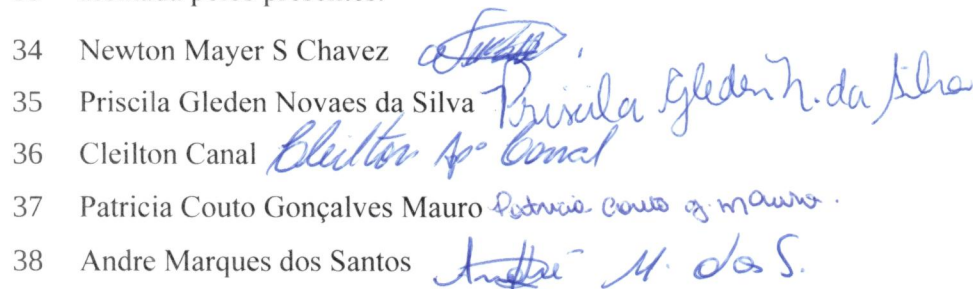 34 Newton Mayer S Chavez
35 Priscila Gleden Novaes da Silva Priscila Gleden N. da Silva
36 Cleilton Canal Cleilton Apº Canal
37 Patricia Couto Gonçalves Mauro Patricia Couto G. Mauro.
38 Andre Marques dos Santos André M. dos S.